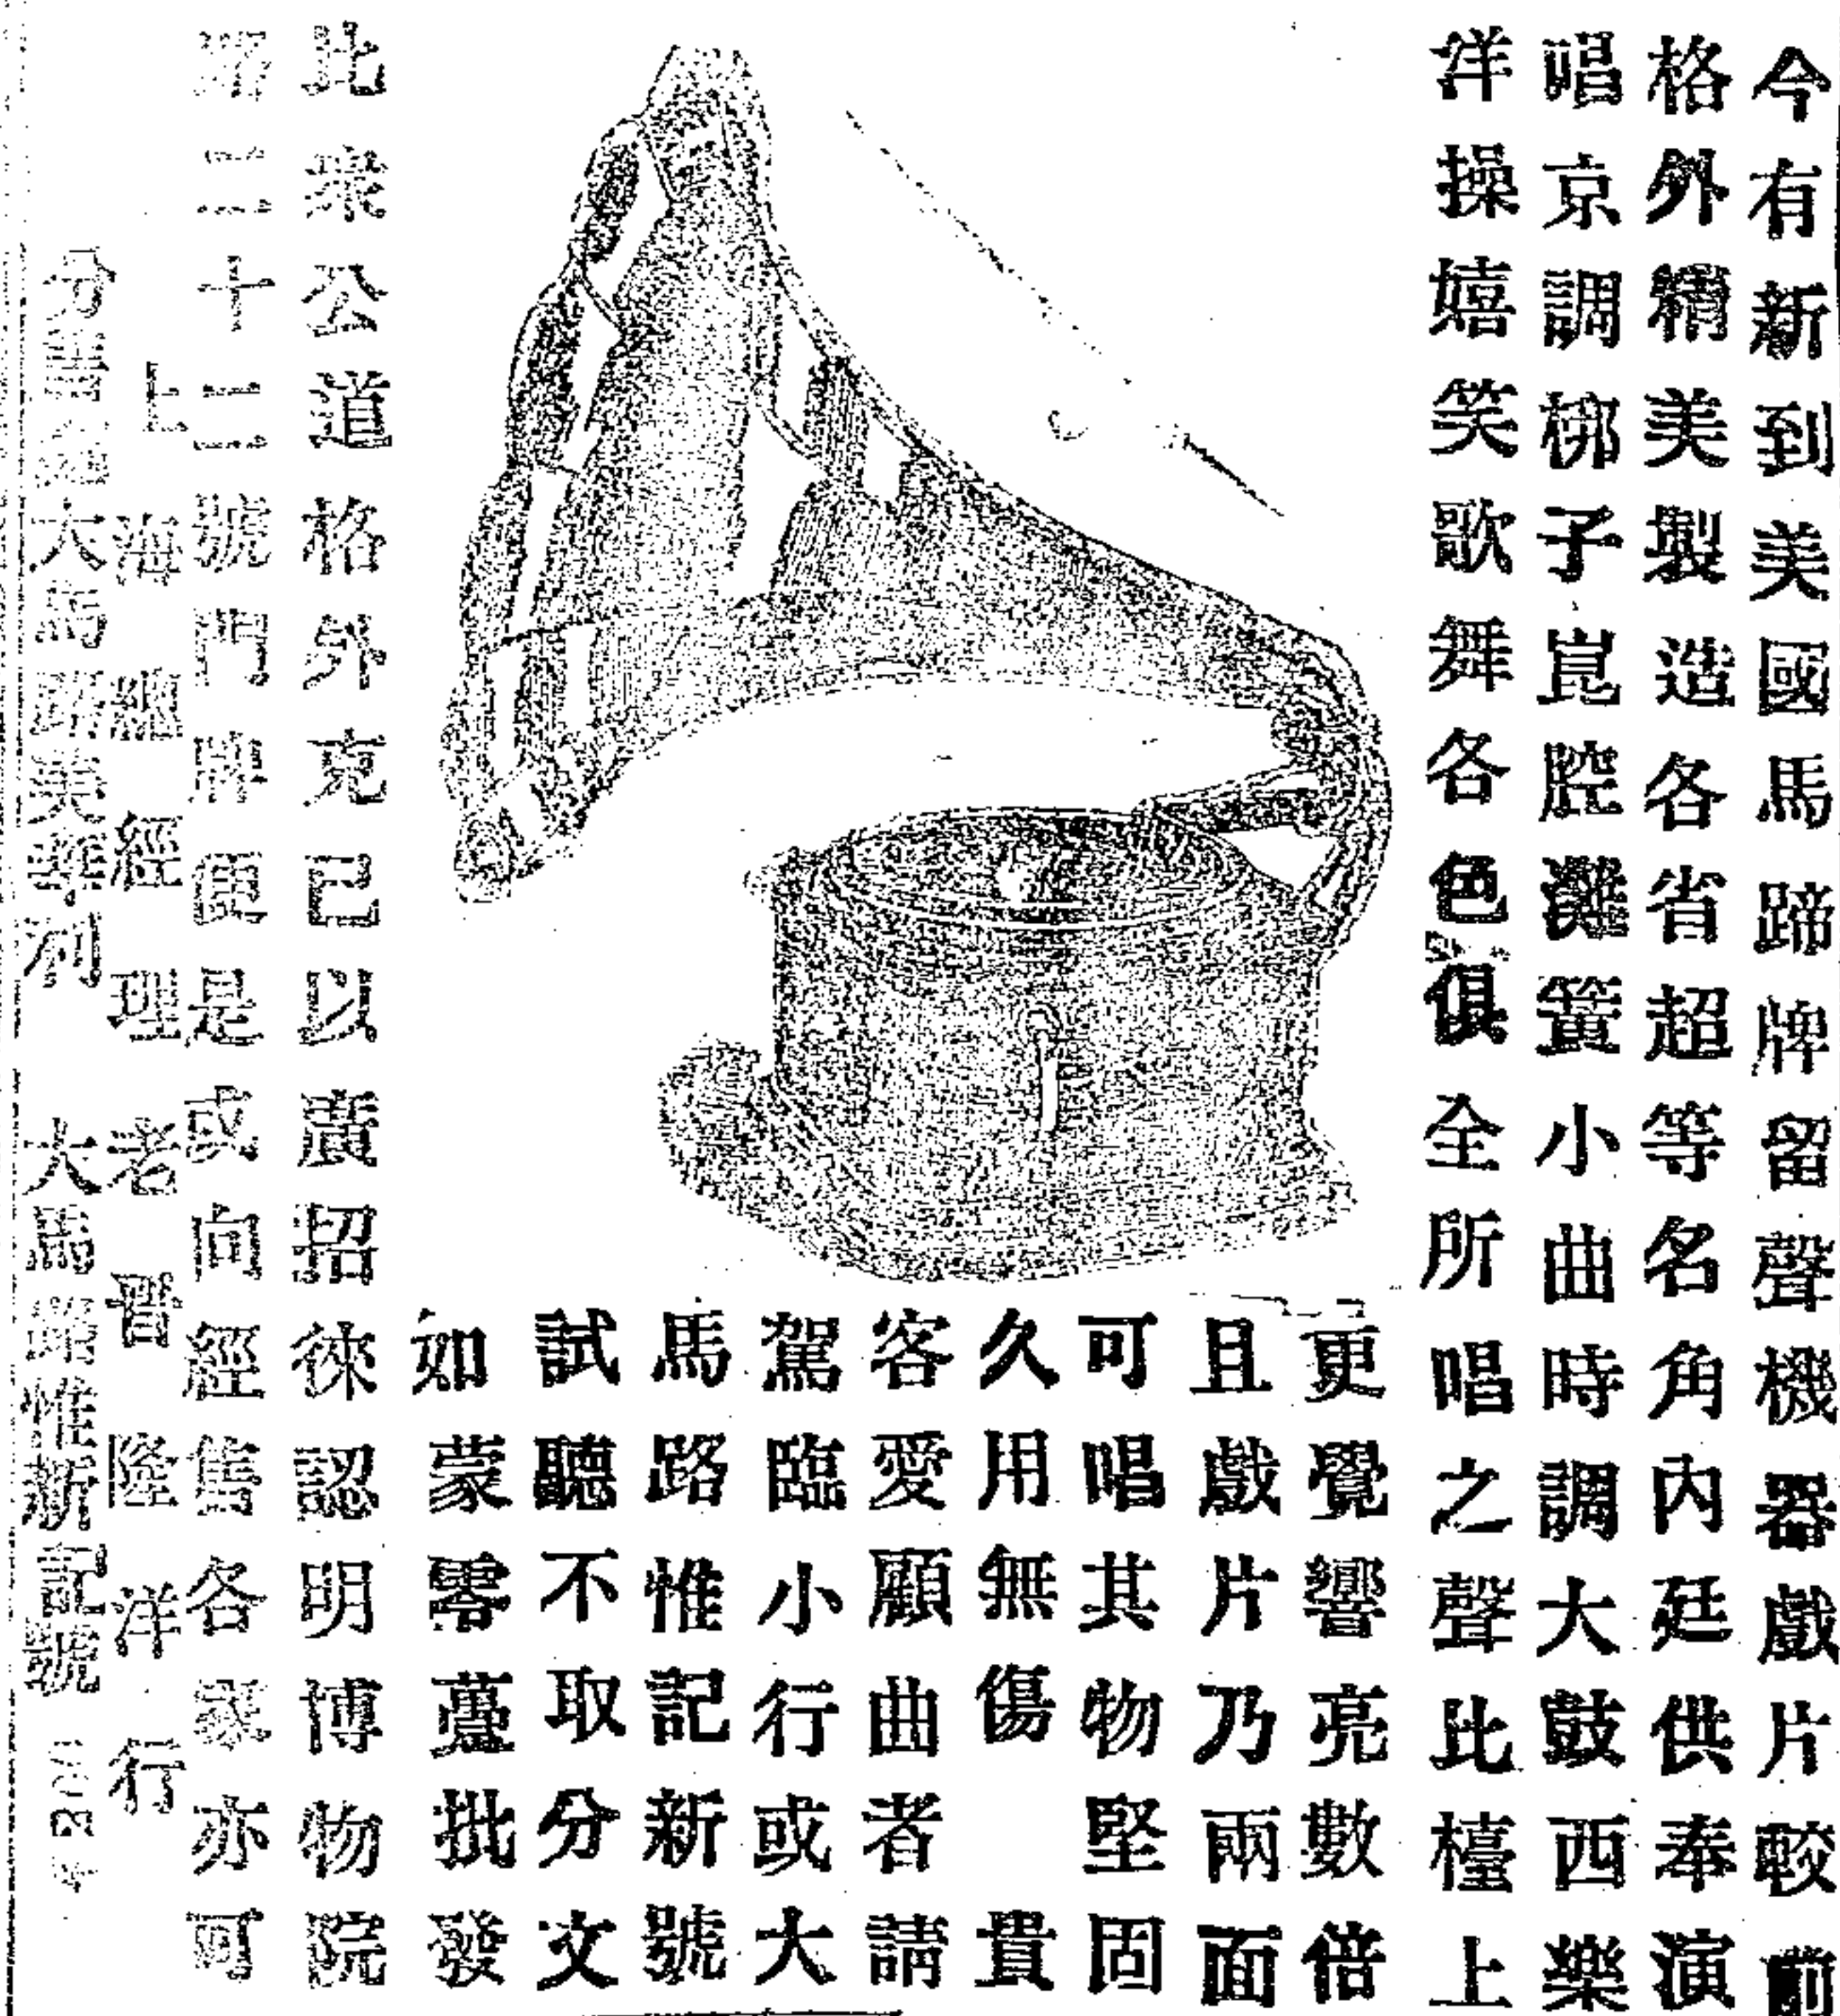 今有新到美國馬蹄牌留聲機器戲片較前
格外精美製造各省超等名角內廷供奉演
唱京調梆子崑腔灘簧小曲時調大鼓西樂
洋操嬉笑歌舞各色俱全所唱之聲比檯上
更覺響亮數倍
且戲片乃兩面
可唱其物堅固
久用無傷 貴
客愛顧曲者請
駕臨小行或大
馬路惟記新號
試聽不取分文
如蒙零躉批發
比衆公道格外克已以廣招徠認明博物院
路二十二號門牌便是或向經售各家亦可
上海總經理老晋隆洋行
大馬路美華利 大馬路惟新記號